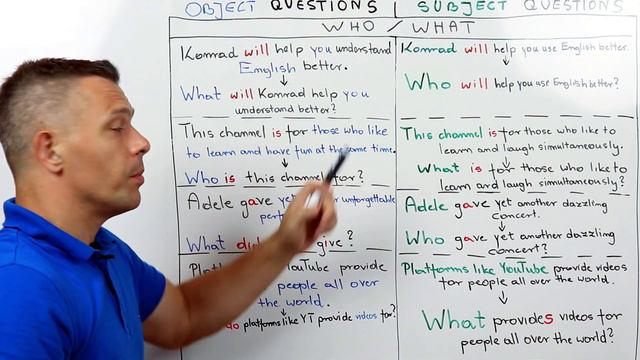 OBJECT QUESTIONS | SUBJECT QUESTIONS
WHO / WHAT
Konrad will help you understand
English better.
What will Konrad help you
understand better?
This channel is for those who like
to learn and have fun at the same time.
Who is this channel for?
Adele gave yet unforgettable
What give?
YouTube provide
people all over
the world.
do platforms like YT provide videos for?
Konrad will help you use English better.
Who will help you use English better?
This channel is for those who like to
learn and laugh simultaneously.
What is for those who like to
learn and laugh simultaneously?
Adele gave yet another dazzling
concert.
Who gave yet another dazzling
concert?
Platforms like YouTube provide videos
for people all over the world.
What provides videos for
people all over the world?